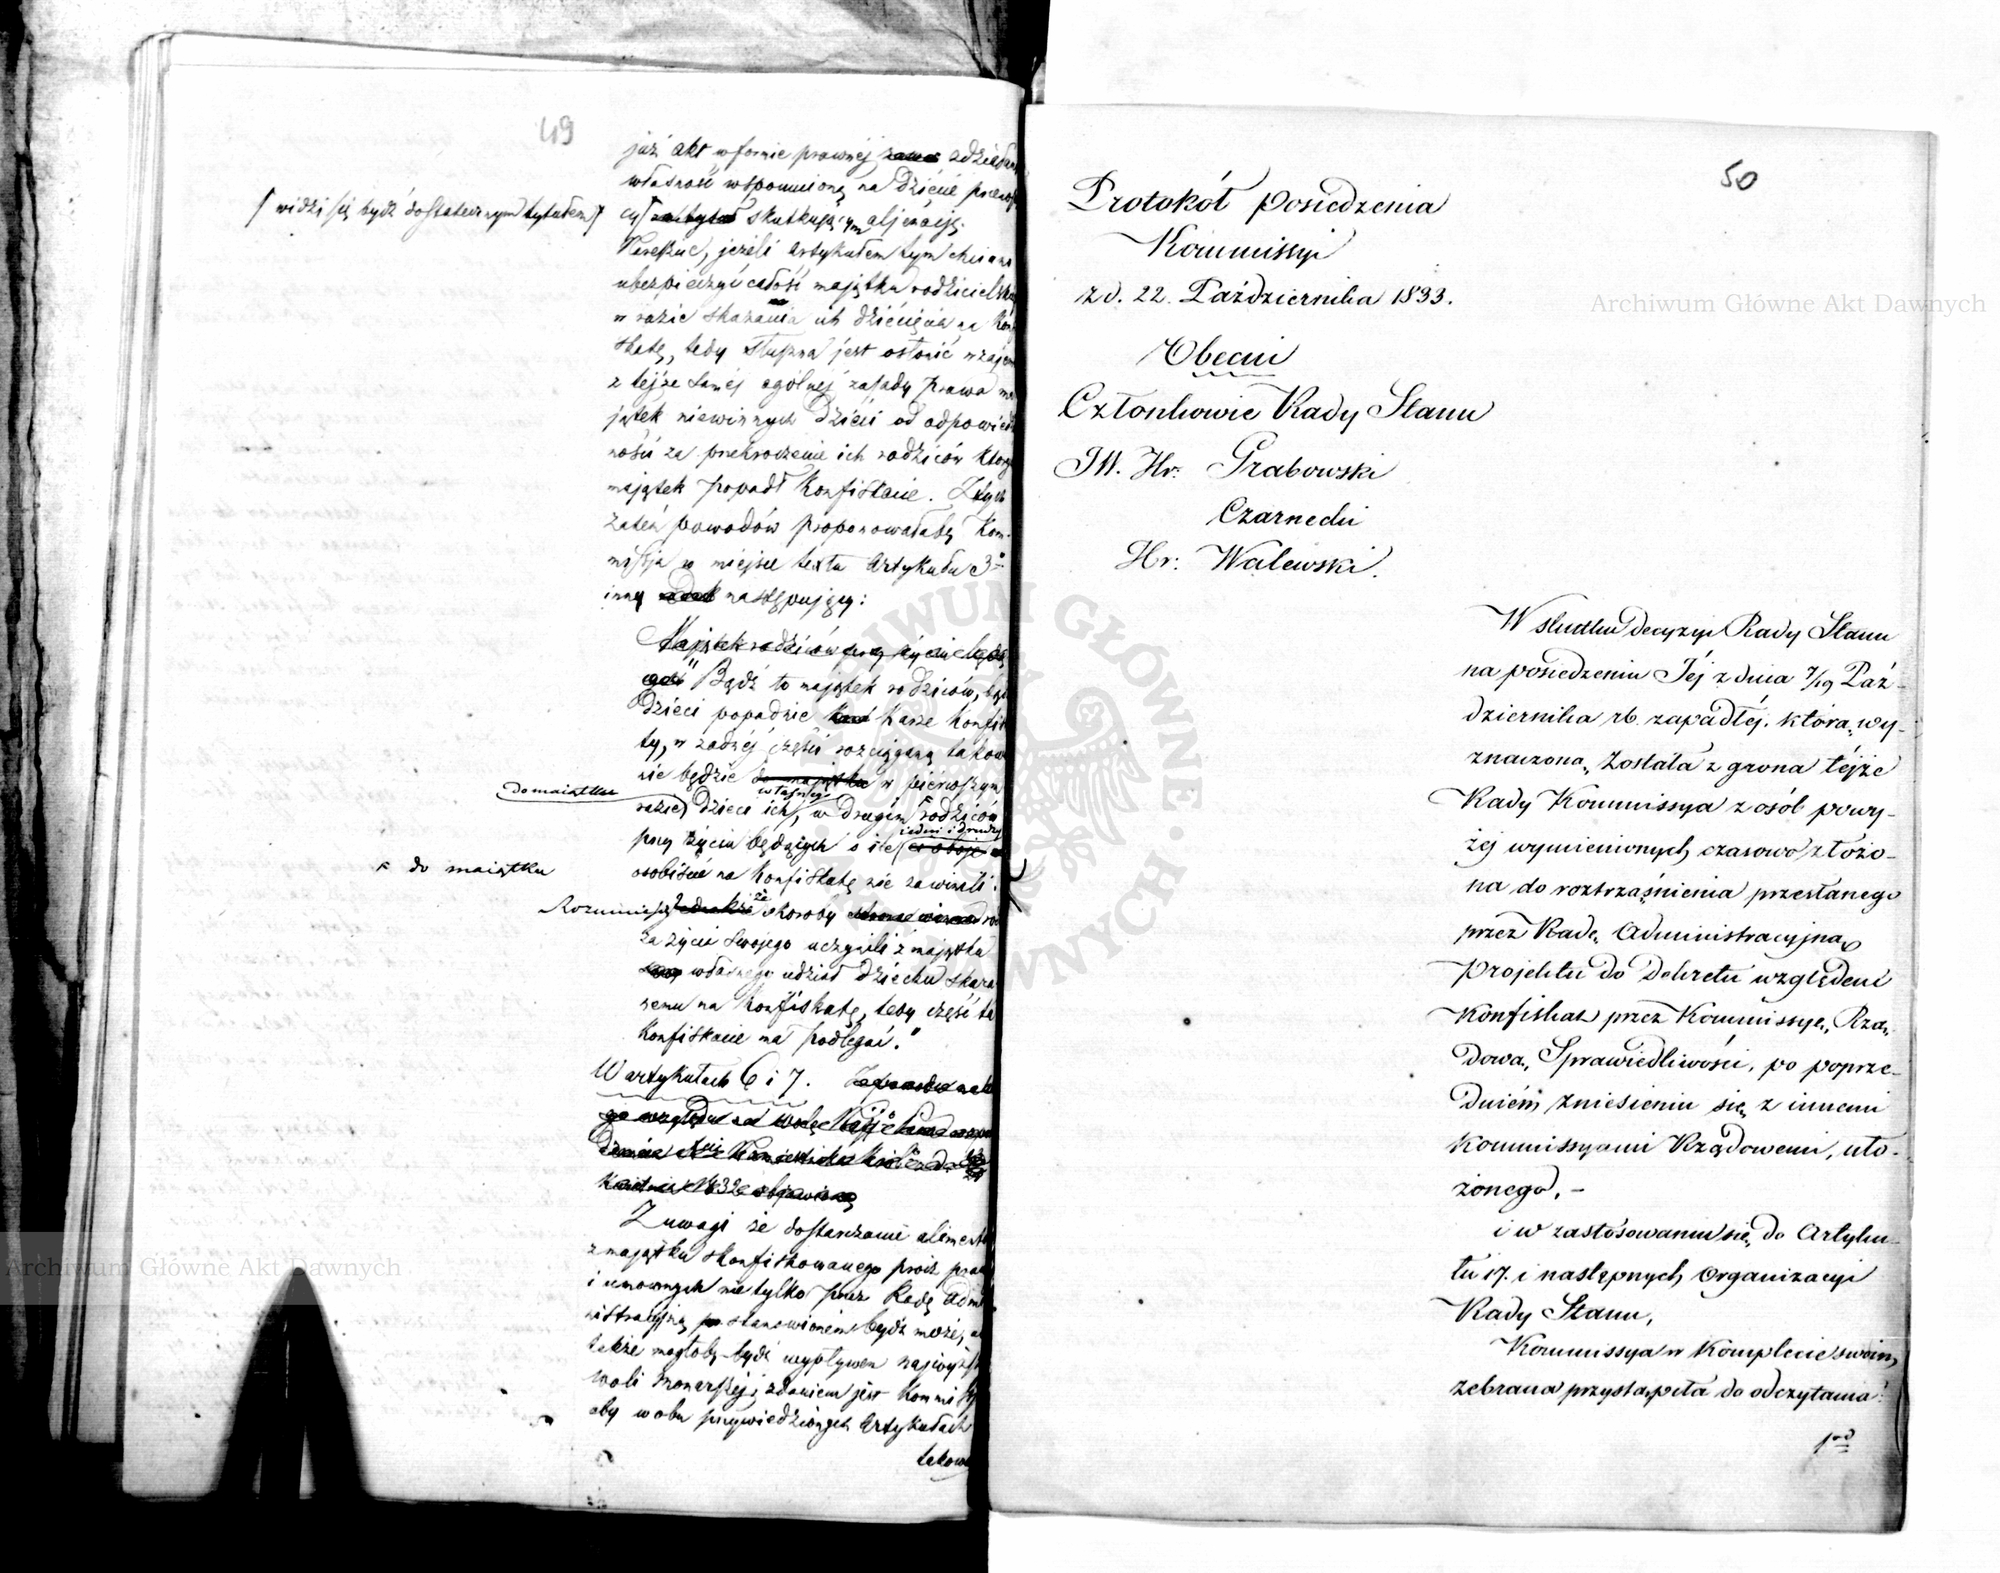 49
już akt w formie prawnej zdziałan
własność wspomnioną na dziecię przenoszą
cy
/ widzi się bydź dostatecznym tytułem /
skutkującym aljenacją.
Nareszcie, jeżeli Artykułem tym chciano
ubezpieczyć całość majątku rodzicielskie
w razie skazania ich dziecięcia na Konfi
skatę, tedy słuszną jest osłonić wzajem
z tejże samej ogólnej zasady prawa ma
jątek niewinnych dzieci od odpowiedzi
ności za przekroczenie ich rodziców których
majątek popadł Konfiskacie. Z tych
zatem powodów proponowałaby Kom-
missja w miejsce textu Artykułu 3º
inny następujący:
Majątek rodziców przy życiu będą
"Bądź to majątek rodziców, bądź
dzieci popadnie karze Konfiska
ty, w żadnej części rozciąganą takowa
nie będzie do majątku w pierwszym
do maiątku
własnego
razie dzieci ich, w drugim rodziców
przy życiu będących o ile
iedni i drudzy
osobiście na Konfiskatę nie zawinili.
do maiątku
Rozumie się że skoroby
za życia swojego uczynili z majątku
własnego udział dziecku skaza
nemu na Konfiskatę, tedy część ta
Konfiskacie ma podlegać."
W artykułach 6 i 7.
Z uwagi że dostarczanie aliment
z majątku skonfiskowanego prócz praw
i umownych nie tylko przez Radę Admi
nistracyjną stanowionem bydź może, a
także mogłoby bydź wypływem najwyższ
woli Monarszej; zdaniem jest Kommissyi
aby w obu przywiedzionych Artykułach
takow
50
Protokół posiedzenia
Kommissyi
z d. 22. Października 1833.
Obecni
Członkowie Rady Stanu
JW. Hr: Grabowski
Czarnecki
Hr: Walewski.
W skutku decyzyi Rady Stanu
na posiedzeniu Jéj z dnia 7/19 Paź-
dziernika rb. zapadłéj, którą wy-
znaczoną została z grona téjże
Rady Kommissya z osób powy-
żéj wymienionych czasowo złożo-
na do roztrząśnienia przesłanego
przez Radę Administracyjną
projektu do Dekretu względem
Konfiskat przez Kommissyę Rzą-
dową Sprawiedliwości, po poprze-
dniém zniesieniu się z innemi
Kommissyami Rządowemi, uło-
żonego, -
i w zastósowaniu się do Artyku-
łu 17. i następnych Organizacyi
Rady Stanu,
Kommissya w Komplecie swoim
zebrana przystąpiła do odczytania